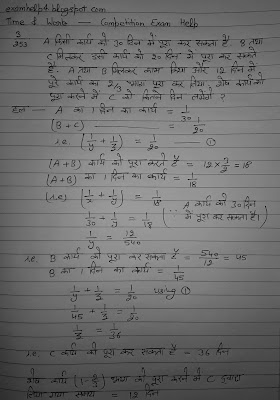 examhelp4.blogspot.com
Time & Work — Competition Exam Help
3/253 A किसी कार्य को 30 दिन में पूरा कर सकता है. B तथा
C मिलकर उसी कार्य को 20 दिन में पूरा कर सकते
हैं. A तथा B मिलकर काम किया और 12 दिन में
पूरे कार्य का 2/3 भाग पूरा कर लिया, शेष कार्य को
पूरा करने में C को कितने दिन लगेंगे ?
हल:— A का 1 दिन का कार्य = 1/30
(B + C) ——— = 1/20
i.e. (1/y + 1/z) = 1/20 — ①
(A+B) कार्य को पूरा करते हैं = 12 × 3/2 = 18
(A+B) का 1 दिन का कार्य = 1/18
(i.e.) (1/x + 1/y) = 1/18
1/30 + 1/y = 1/18 (∵ A कार्य को 30 दिन में पूरा कर सकता है।)
1/y = 12/540
i.e. B कार्य को पूरा कर सकता है = 540/12 = 45
B का 1 दिन का कार्य = 1/45
1/y + 1/z = 1/20 using ①
1/45 + 1/z = 1/20
1/z = 1/36
i.e. C कार्य को पूरा कर सकता है = 36 दिन
शेष कार्य (1 - 2/3) भाग को पूरा करने में C द्वारा
लिया गया समय = 12 दिन